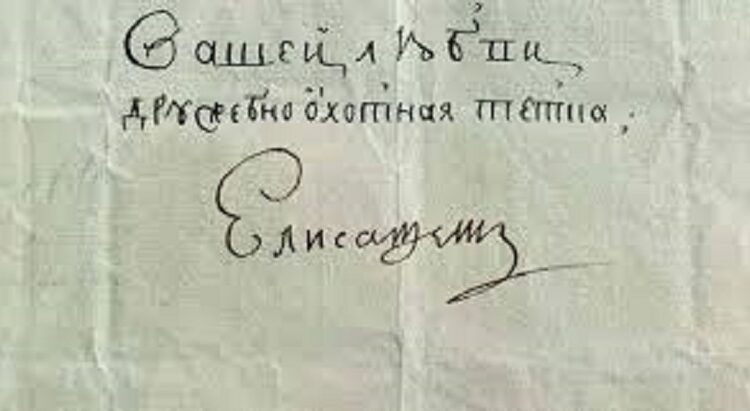 Вашей любви
дружебно охотная тетка,
Елисаветъ